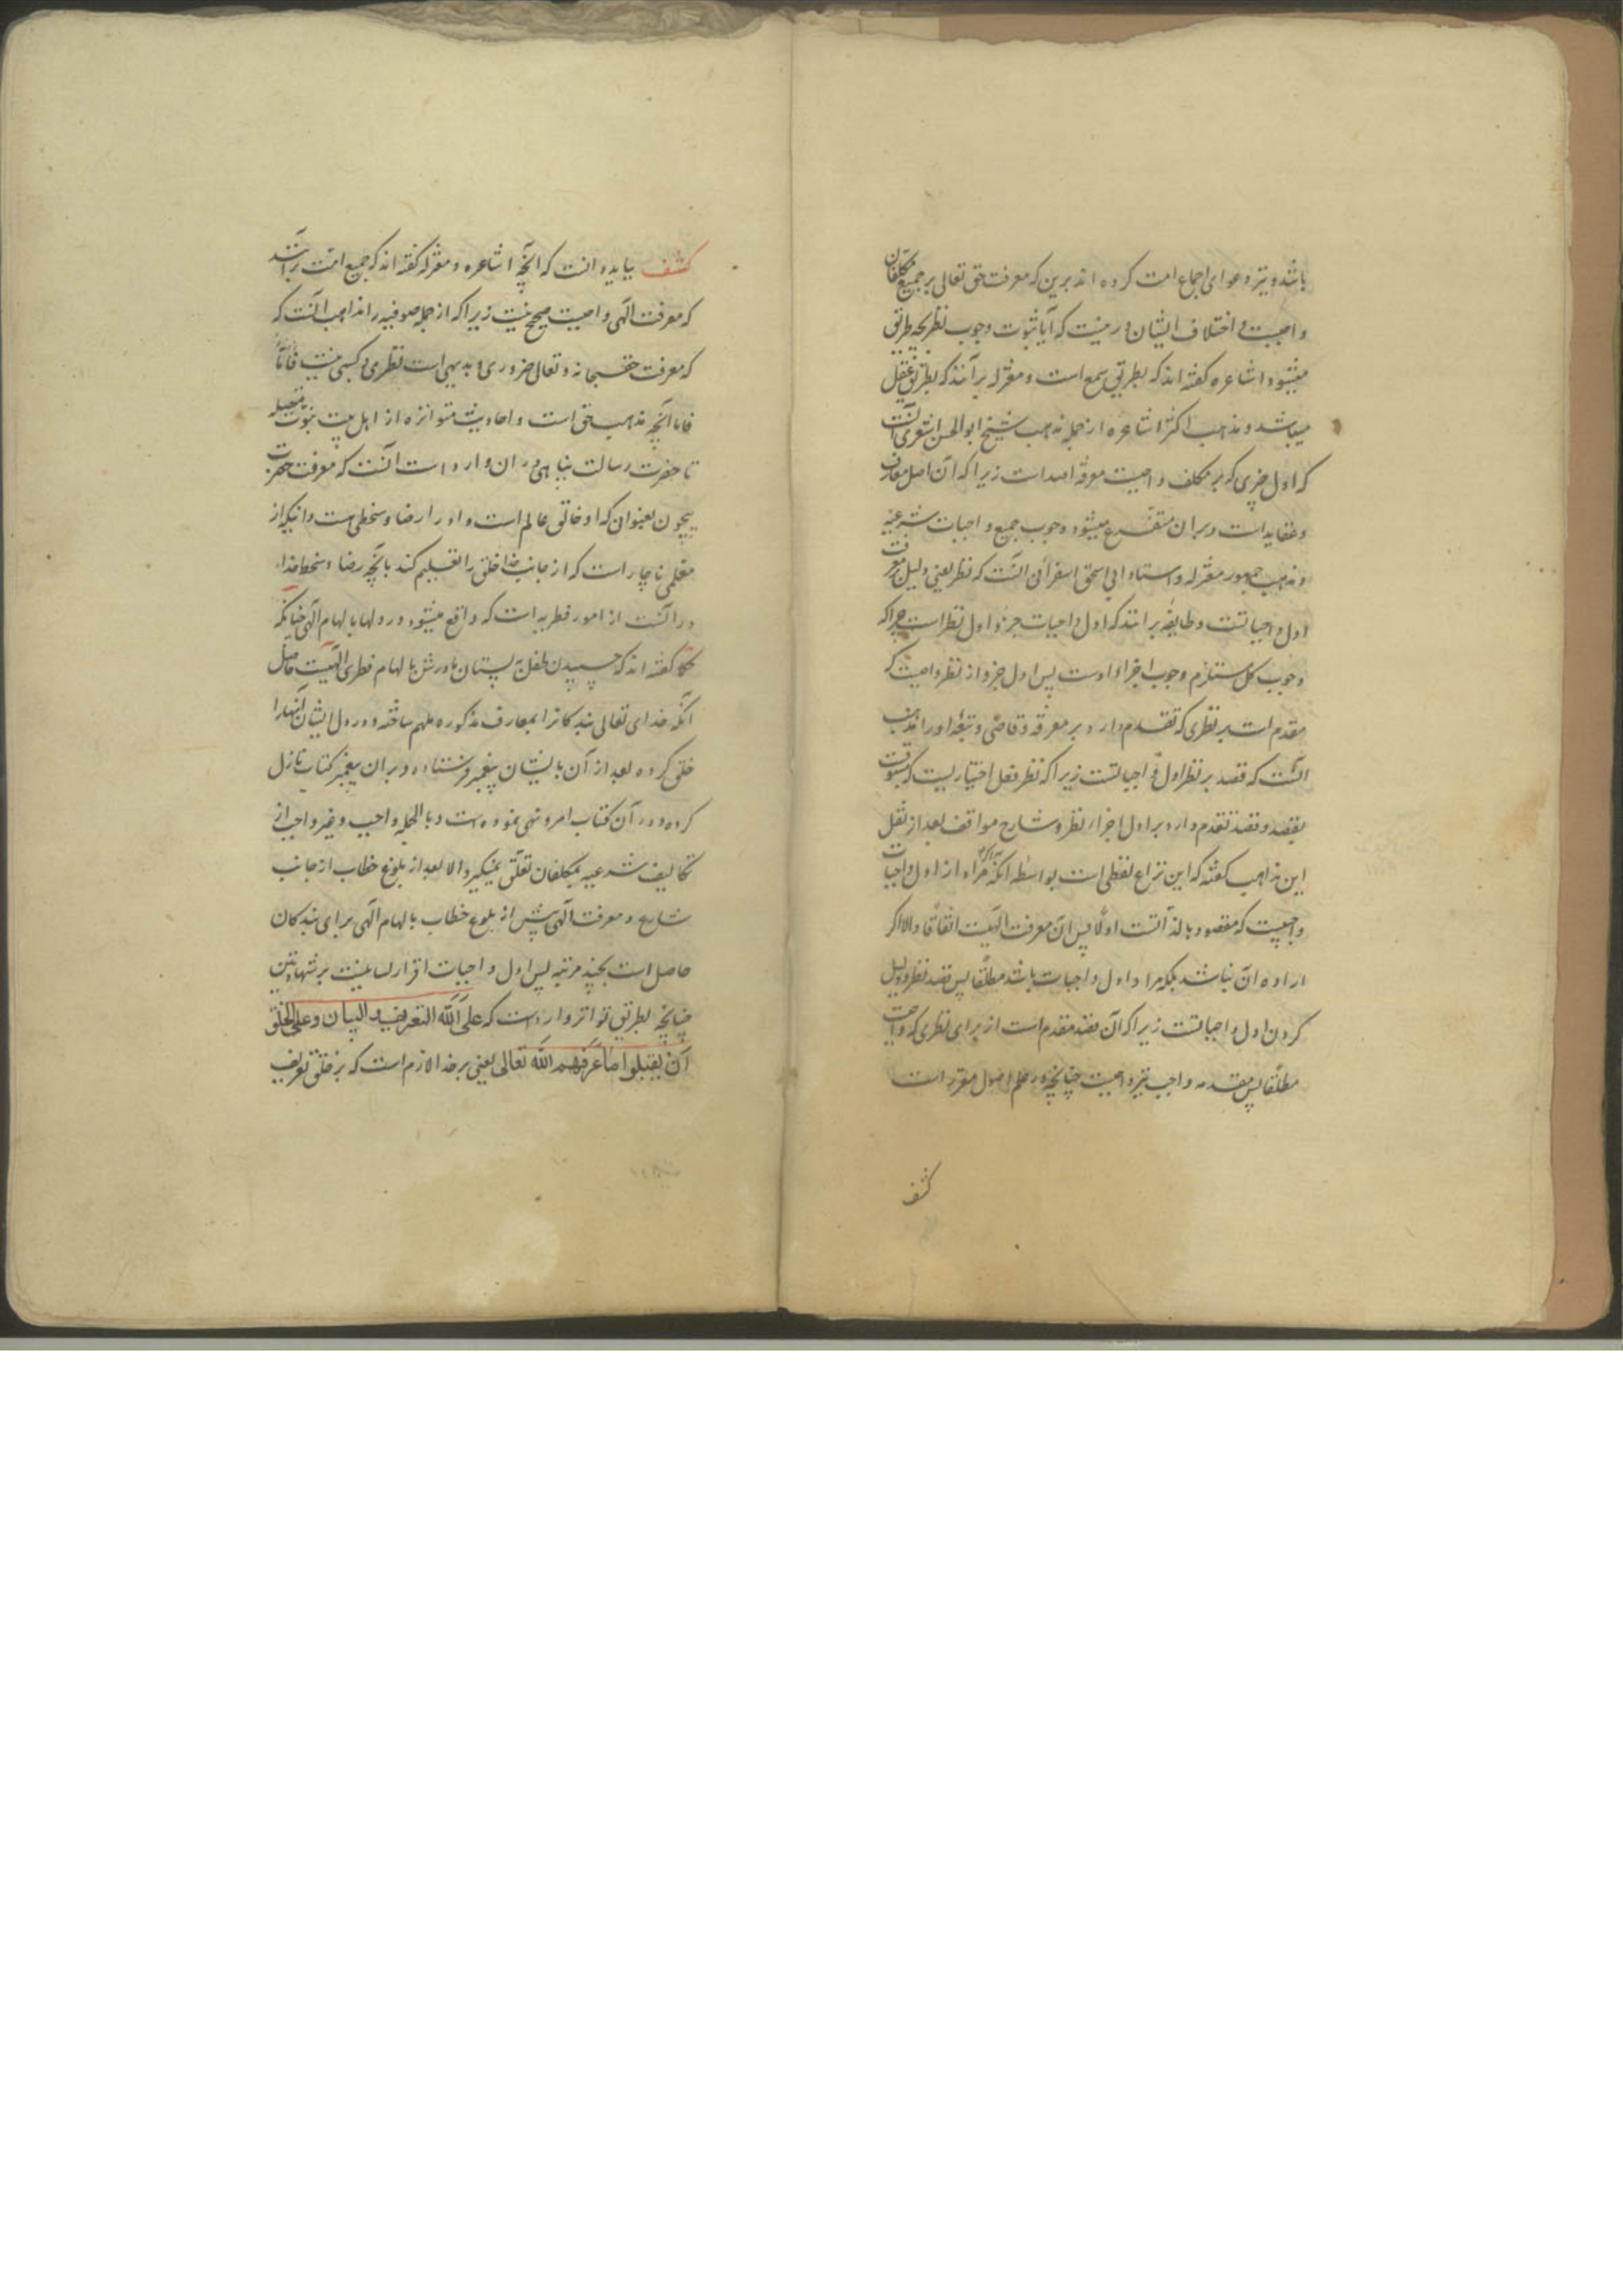 باشد و نیز دعوای اجماع امت کرده اند برین که معرفت حق تعالی بر جمیع مکلفان
واجبست و اختلاف ایشان درینست که آیا ثبوت وجوب نظر بچه طریق
میشود اشاعره گفته اند که بطریق سمع است و معتزله برآنند که بطریق عقل
میباشد و مذهب اکثر اشاعره از جمله مذهب شیخ ابو الحسن اشعری آنست
که اول چیزی که بر مکلف واجبست معرفة الله است زیرا که آن اصل معارف
و عقاید است و بران متفرع میشود وجوب جمیع واجبات شرعیه
و مذهب جمهور معتزله و استاد ابی اسحق اسفراینی آنست که نظر یعنی دلیل معرفت
اول واجباتست و طایفه برانند که اول واجبات جزو اول نظر است چرا که
وجوب کل مستلزم وجوب اجزاء اوست پس اول جزو از نظر واجبست که
مقدم است بر نظری که تقدم دارد بر معرفة و قاضی و تبعه او را مذهب
آنست که قصد بر نظر اول واجباتست زیرا که نظر فعل اختیاریست که مسبوقست
بقصد و قصد تقدم دارد بر اول اجزاء نظر و شارح مواقف بعد از نقل
این مذاهب گفته که این نزاع لفظی است بواسطه آنکه اگر مراد از اول واجبات
واجبیست که مقصود بالذاتست اولا پس آن معرفت الهیست اتفاقا و الا اگر
اراده آن نباشد بلکه مراد اول واجبات باشد مطلقا پس قصد نظر و دلیل
کردن اول واجباتست زیرا که آن قصد مقدم است از برای نظری که واجبست
مطلقا پس مقدمه واجب نیز واجبست چنانچه در علم اصول مقرر است
کشف
کشف بباید دانست که آنچه اشاعره و معتزله گفته اند که جمیع امت برآنند
که معرفت الهی واجبست صحیح نیست زیرا که از جمله صوفیه را مذاهب آنست که
که معرفت حق سبحانه و تعالی ضروری و بدیهی است نظری و کسبی نیست
فاما آنچه مذهب حق است و احادیث متواتره از اهل بیت نبوت
تا حضرت رسالت پناهی در ان وارد است آنست که معرفت حضرت
بیچون بعنوان که او خالق عالم است و او را رضا و سخطی هست و اینکه از
معلمی ناچار است که از جانب خدا خلق را تعلیم کند بآنچه رضا و سخط خدا
در آنست از امور فطریه است که واقع میشود در دلها بالهام الهی چنانکه
حکما گفته اند که چسپیدن طفل به پستان مادرش بالهام فطری الهیست حاصل
آنکه خدای تعالی بندکانرا بمعارف مذکوره ملهم ساخته و در دل ایشان آنها را
خلق کرده بعد از آن بایشان پیغمبر فرستاده و بران پیغمبر کتاب نازل
کرده و در آن کتاب امر و نهی نموده است و بالجمله واجب و غیر واجب از
تکالیف شرعیه بمکلفان تعلق نمیکیرد الا بعد از بلوغ خطاب از جانب
شارع و معرفت الهی پیش از بلوغ خطاب بالهام الهی برای بندکان
حاصل است بچند مرتبه پس اول واجبات اقرار لسانیست بر شهادتین
چنانچه بطریق تواتر وارد است که علی الله التعریف و البیان و علی الخلق
ان یقبلوا ما عرفهم الله تعالی یعنی بر خدا لازم است که بر خلق تعریف